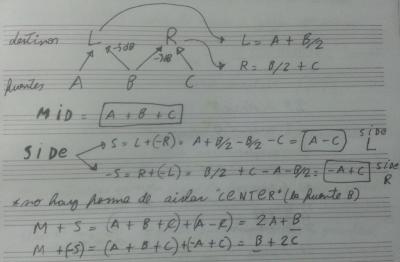 destinos L R L = A + B/2
-3dB -3dB R = B/2 + C
fuentes A B C
MiD = A + B + C
SiDE S = L+(-R) = A + B/2 - B/2 - C = A - C side L
-S = R+(-L) = B/2 + C - A - B/2 = -A + C side R
*no hay forma de aislar "CENTER" (la fuente B)
M + S = (A + B + C) + (A - C) = 2A + B
M + (-S) = (A + B + C) + (-A + C) = B + 2C